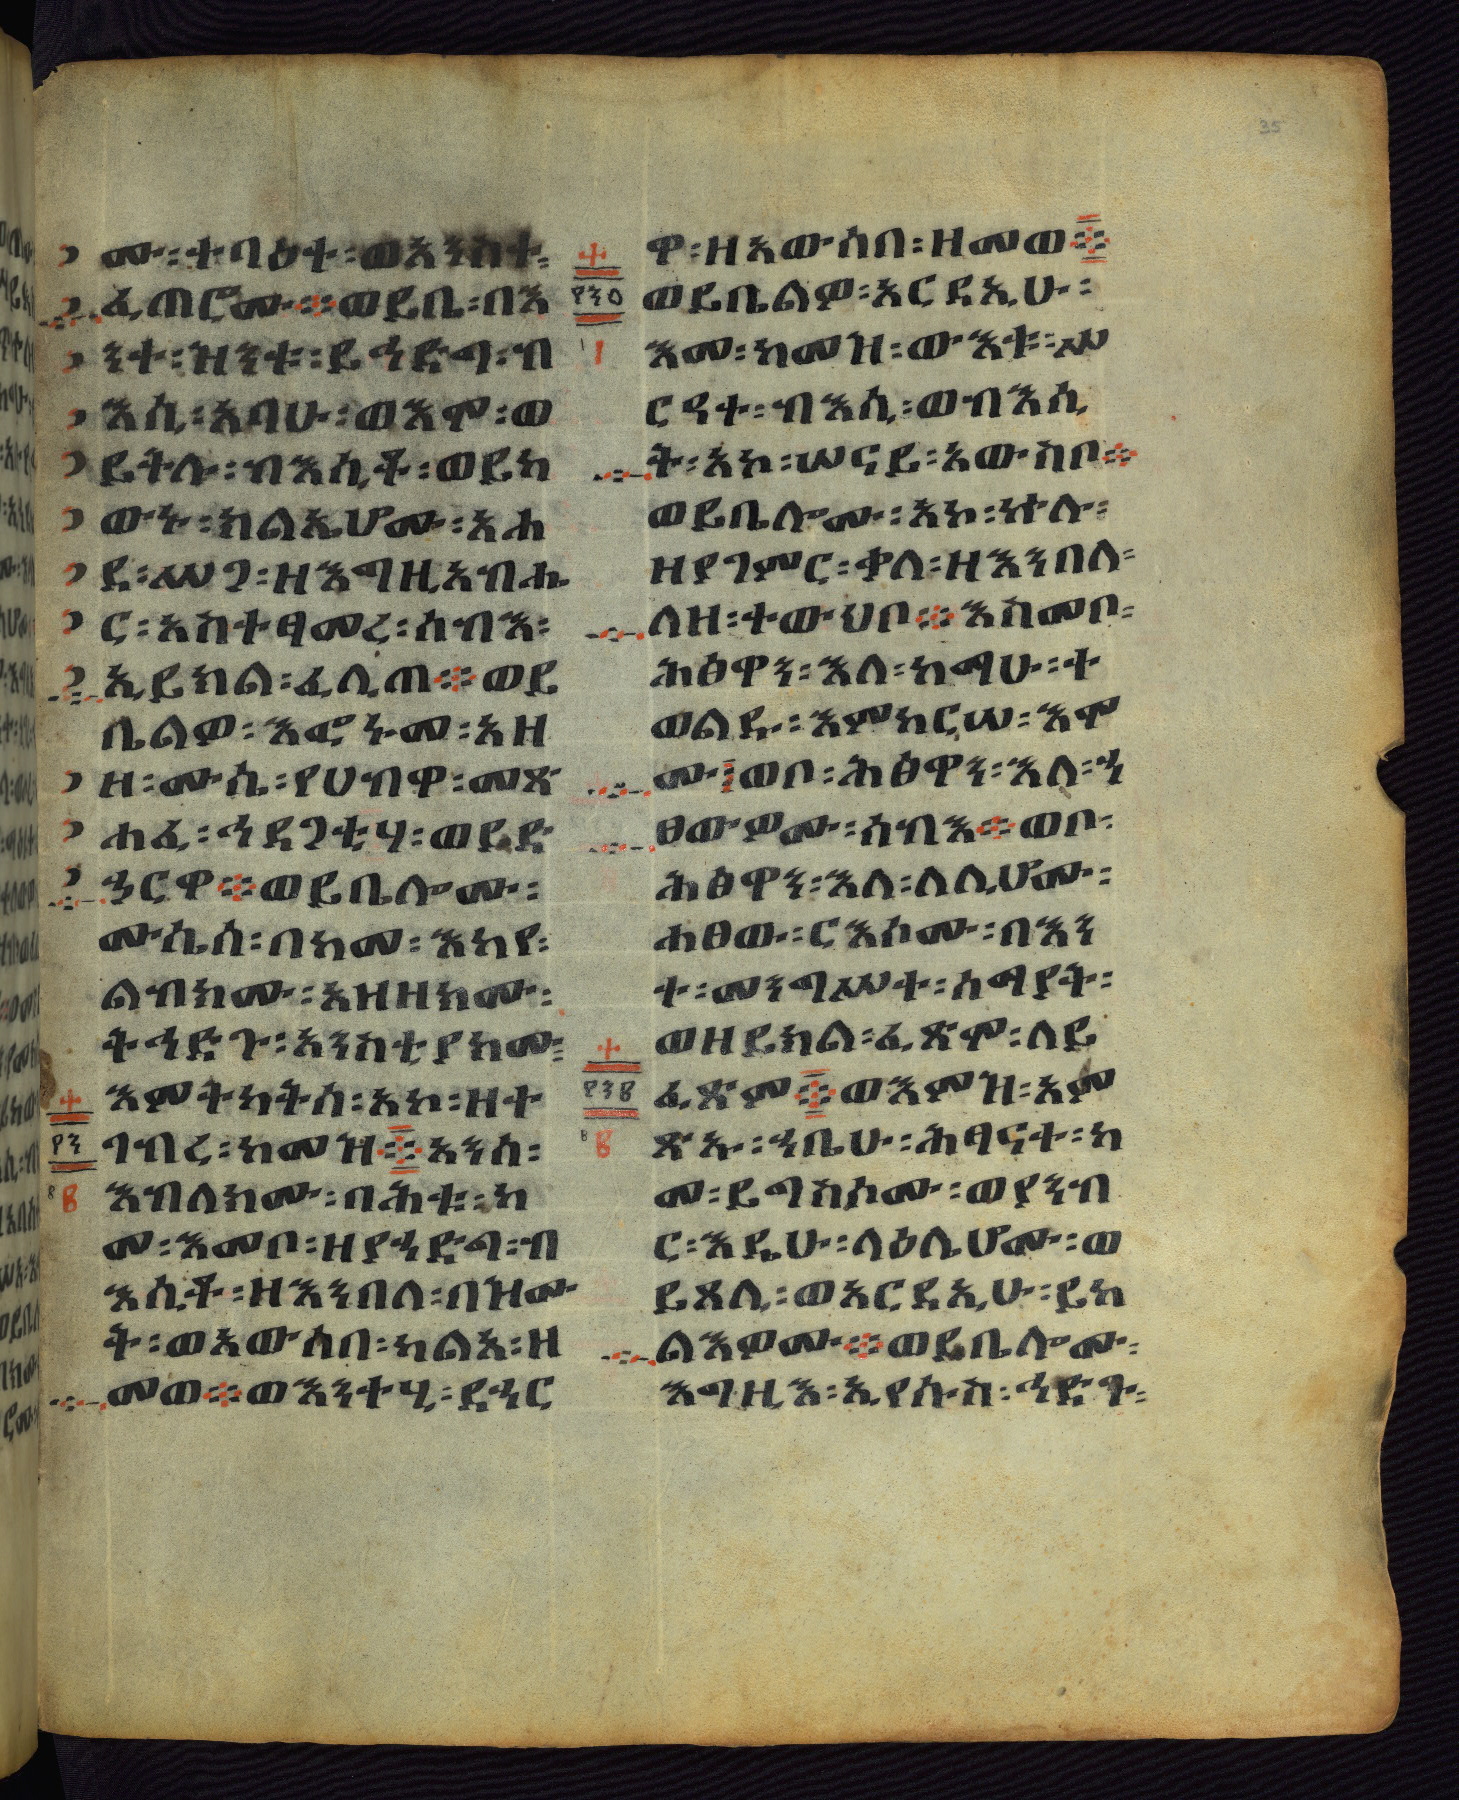 35
ሙ፡ተባዕተ፡ወአንስተ፡
ፈጠሮሙ።ወይቤ፡በእ
ንተ፡ዝንቱ፡ይኅድግ፡ብ
እሲ፡አባሁ፡ወእሞ፡ወ
ይትሉ፡ብእሲቶ፡ወይከ
ውኑ፡ክልኤሆሙ፡አሐ
ደ፡ሥጋ፡ዘእግዚአብሔ
ር፡አስተፃመረ፡ሰብእ፡
ኢይክል፡ፈሊጠ።ወይ
ቤልዎ፡እፎኑመ፡አዘ
ዘ፡ሙሴ፡የሀብዋ፡መጽ
ሐፈ፡ኅዳጋቲሃ፡ወይድ
ኅርዋ።ወይቤሎሙ፡
ሙሴሰ፡በከመ፡እከየ፡
ልብክሙ፡አዘዘክሙ፡
ትኅድጉ፡አንስቲያክሙ፡
እምትካትሰ፡አኮ፡ዘተ
፻፺
ገብረ፡ከመዝ።አንሰ፡
፪
እብለክሙ፡ባሕቱ፡ከ
መ፡እመቦ፡ዘያኅድግ፡ብ
እሲቶ፡ዘእንበለ፡በዝሙ
ት፡ወአውሰበ፡ካልእ፡ዘ
መወ።ወእንተሂ፡ደኅር
ዋ፡ዘአውሰበ፡ዘመወ።
ወይቤልዎ፡አርዳኢሁ፡
እመ፡ከመዝ፡ውእቱ፡ሥ
፩
ርዓተ፡ብእሲ፡ወብእሲ
ት፡አኮ፡ሠናይ፡አውስቦ።
ወይቤሎሙ፡አኮ፡ኵሉ፡
ዘያገምር፡ቃለ፡ዘእንበለ፡
ለዘ፡ተውህቦ።እስመቦ፡
ሕፅዋን፡እለ፡ከማሁ፡ተ
ወልዱ፡እምከርሠ፡እሞ
ሙ፡ወቦ፡ሕፅዋን፡እለ፡ኀ
ፀውዎሙ፡ሰብእ።ወቦ፡
ሕፅዋን፡እለ፡ለሊሆሙ፡
ሐፀው፡ርእሶሙ፡በእን
ተ፡መንግሥተ፡ሰማያት፡
ወዘይክል፡ፈጽሞ፡ለይ
ፈጽም።ወእምዝ፡አም
ጽኡ፡ኀቤሁ፡ሕፃናተ፡ከ
፪
መ፡ይግስሶሙ፡ወያንብ
ር፡እዴሁ፡ላዕሌሆሙ፡ወ
ይጸሊ፡ወአርዳኢሁ፡ይከ
ልእዎሙ።ወይቤሎሙ፡
እግዚእ፡ኢየሱስ፡ኅድጉ፡